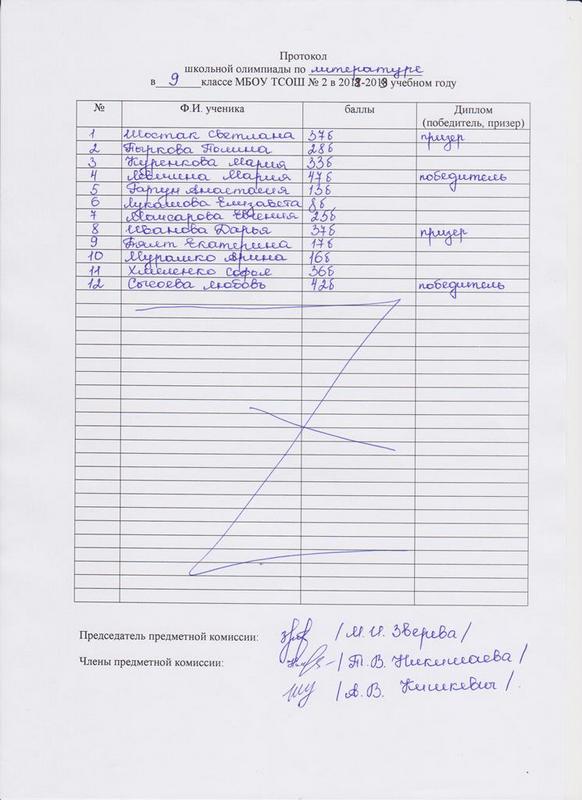 Протокол
школьной олимпиады по литературе
в 9 классе МБОУ ТСОШ № 2 в 2018-2019 учебном году
№ Ф.И. ученика баллы Диплом
(победитель, призер)
1 Шостак Светлана 37б призер
2 Пыркова Полина 28б
3 Куренкова Мария 33б
4 Мария 47б победитель
5 Гаргун Анастасия 13б
6 Лукашова Елизавета 8б
7 Евгения 25б
8 Иванова Дарья 37б призер
9 Екатерина 17б
10 Мурашко Арина 16б
11 Хмеленко Софья 36б
12 Сысоева Любовь 42б победитель
Председатель предметной комиссии: / М.И. Зверева /
Члены предметной комиссии: / Т.В. Никишаева /
/ А.В. Кишкевич /.